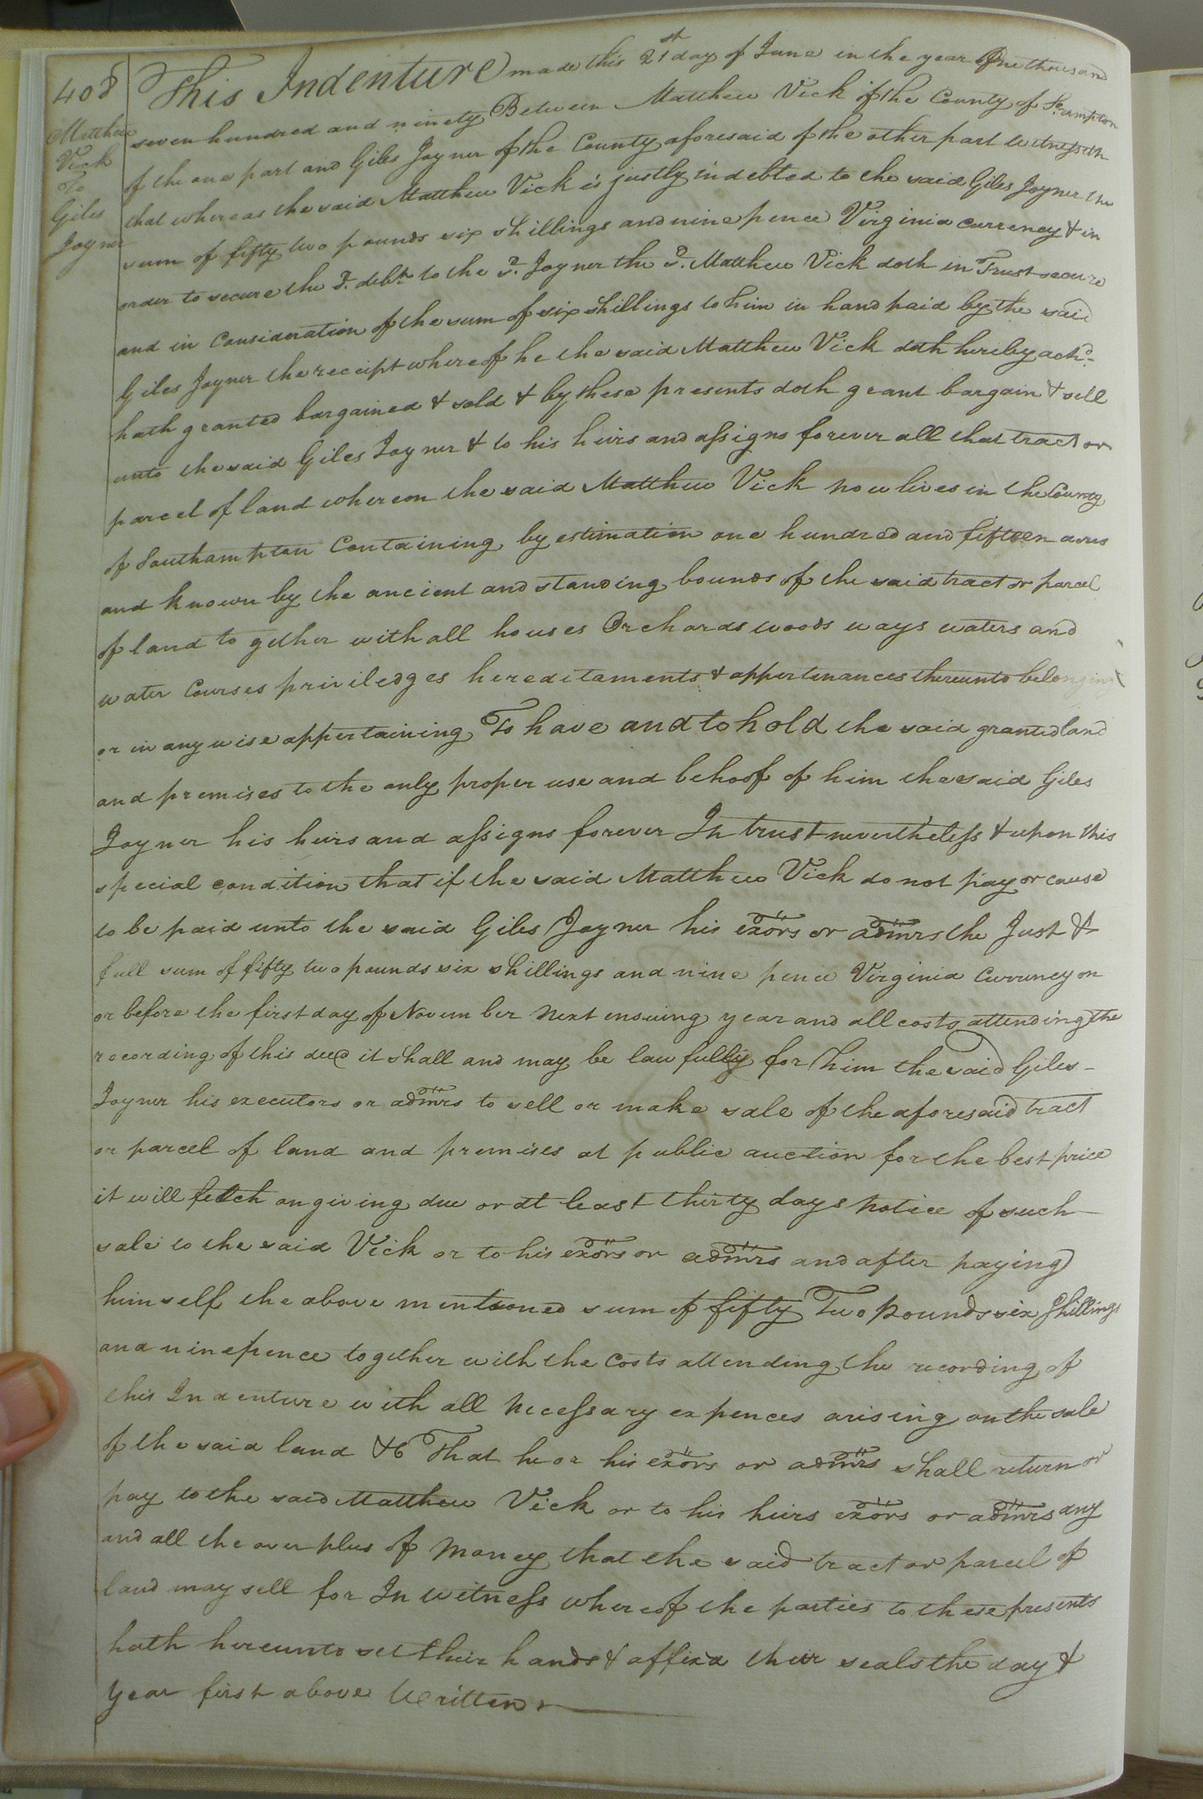 408
Matthew
Vick
To
Giles
Joyner
This Indenture made this 21st day of June in the year One thousand
seven hundred and ninety Between Matthew Vick of the County of So.ampton
of the one part and Giles Joyner of the County aforesaid of the other part witnesseth
that whereas the said Matthew Vick is justly indebted to the said Giles Joyner the
sum of fifty two pounds six shillings and nine pence Virginia currency & in
order to secure the sd. debt to the sd. Joyner the sd. Matthew Vick doth in Trust secure
and in Consideration of the sum of six shillings to him in hand paid by the said
Giles Joyner the receipt whereof he the said Matthew Vick doth hereby ackd.
hath granted bargained & sold & by these presents doth grant bargain & sell
unto the said Giles Joyner & to his heirs and assigns forever all that tract or
parcel of land whereon the said Matthew Vick now lives in the County
of Southampton Containing by estimation one hundred and fifteen acres
and known by the ancient and standing bounds of the said tract or parcel
of land to gether with all houses Orchards woods ways waters and
water Courses priviledges hereditaments & appertenances thereunto belonging
or in any wise appertaining To have and to hold the said granted land
and premises to the only proper use and behoof of him the said Giles
Joyner his heirs and assigns forever In trust nevertheless & upon this
special condition that if the said Matthew Vick do not pay or cause
to be paid unto the said Giles Joyner his exors or admrs the Just &
full sum of fifty two pounds six shillings and nine pence Virginia Curruncy on
or before the first day of November Next ensuing year and all costs attending the
recording of this deed it shall and may be lawfully for him the said Giles
Joyner his executors or admrs to sell or make sale of the aforesaid tract
or parcel of land and premises at public auction for the best price
it will fetch on giving due or at least thirty days notice of such
sale to the said Vick or to his exors or admrs and after paying
himself the above mentioned sum of fifty Two pounds six Shillings
and ninepence together with the Costs attending the recording of
this Indenture with all Necessary expences arising on the sale
of the said land &c That he or his exors or admrs shall return or
pay to the said Matthew Vick or to his heirs exors or admrs any
and all the over plus of Money that the said tract or parcel of
land may sell for In witness whereof the parties to these presents
hath hereunto set their hands & affixd their seals the day &
year first above Written